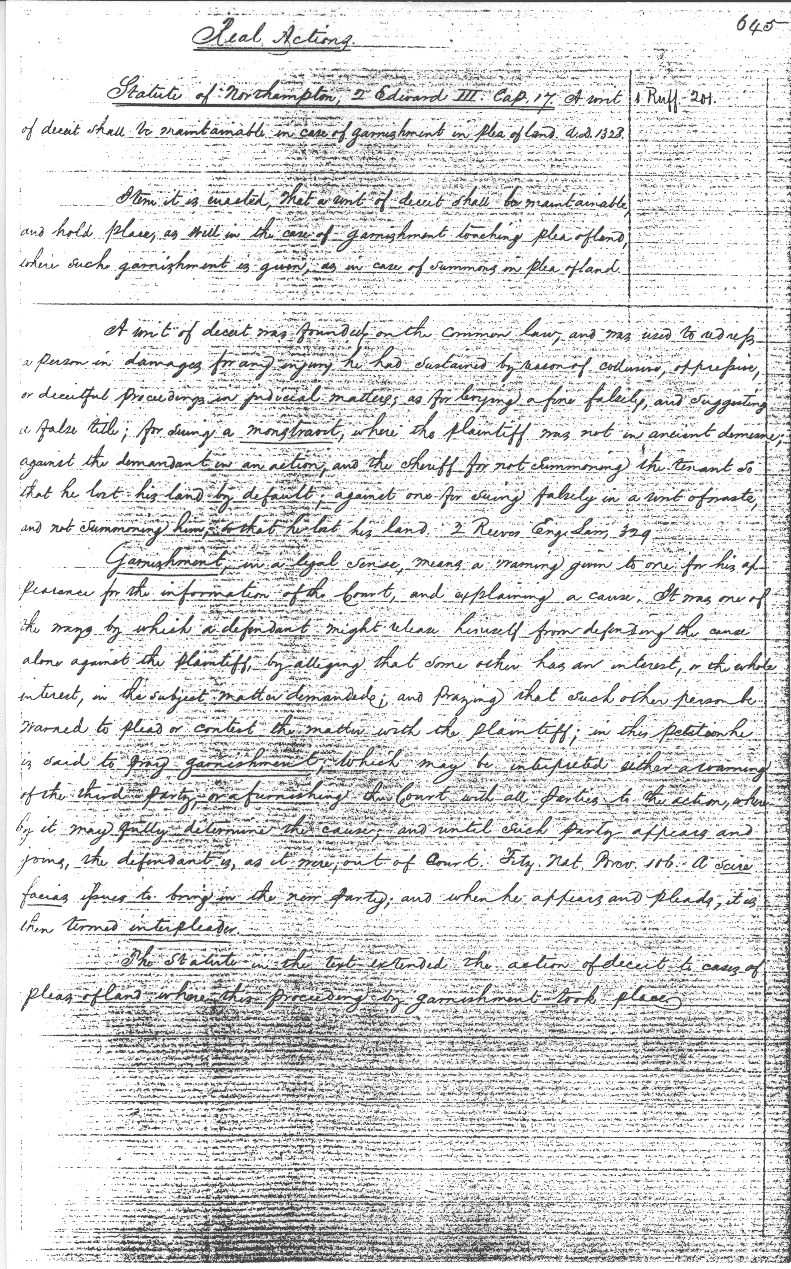 645
Real Actions.
Statute of Northampton, 2 Edward III. Cap. 17. A writ
1 Ruff. 201.
of deceit shall be maintainable in case of garnishment in plea of land. A.D. 1328.
Item it is enacted, that a writ of deceit shall be maintainable,
and hold place, as well in the case of garnishment touching plea of land,
where such garnishment is given, as in case of summons in plea of land.
A writ of deceit was founded on the common law, and was used to redress
a person in damages for any injury he had sustained by reason of collusive, oppressive,
or deceitful proceedings in judicial matters; as for levying a fine falsely, and suggesting
a false title; for suing a monstravit, where the plaintiff was not in ancient demesne;
against the demandant in an action, and the sheriff for not summoning the tenant so
that he lost his land by default; against one for suing falsely in a writ of waste,
and not summoning him, so that he lost his land. 2 Reeves Eng. Law, 329
Garnishment, in a legal sense, means a warning given to one for his ap-
pearance for the information of the Court, and explaining a cause. It was one of
the ways by which a defendant might release himself from defending the cause
alone against the plaintiff, by alleging that some other has an interest, or the whole
interest, in the subject matter demanded; and praying that such other person be
warned to plead or contest the matter with the plaintiff; in this petition he
is said to pray garnishment; which may be interpreted either a warning
of the third party, or a furnishing the Court with all parties to the action, where
by it may fully determine the cause; and until such party appears and
joins, the defendant is, as it were, out of Court. Fitz. Nat. Brev. 106. A scire
facias issues to bring in the new party; and when he appears and pleads, it is
then termed interpleader.
The statute in the text extended the action of deceit to cases of
pleas of land where this proceeding by garnishment took place